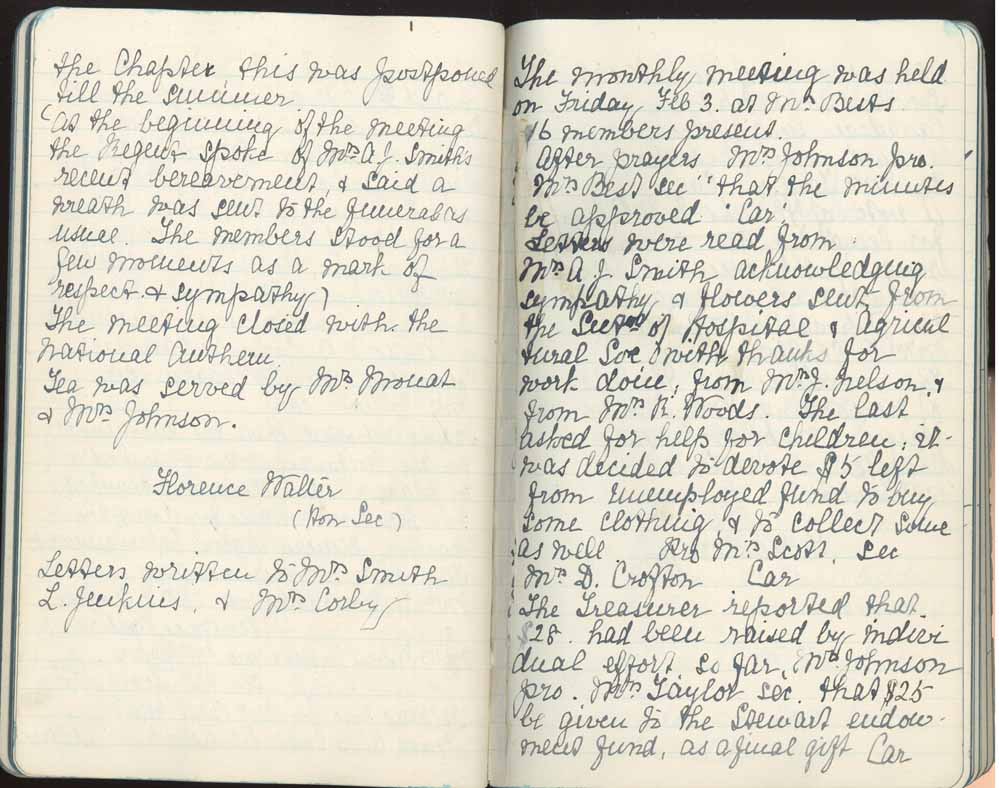 the Chapter this was postponed
till the summer
(as the beginning of the meeting
the Regent spoke of Mrs A. J. Smith's
recent bereavement, & said a
wreath was sent to the funeral as
usual. The members stood for a
few moments as a mark of
respect & sympathy)
The meeting closed with the
National Anthem.
Tea was served by Mrs Mouat
& Mrs Johnson.
Florence Walter
(Hon Sec)
Letters written to Mrs Smith
L. Jenkins, & Mrs Corby
The monthly meeting was held
on Friday Feb 3. at Mrs Bests
16 members present.
After prayers Mrs Johnson pro.
Mrs Best sec "that the minutes
be approved" Car.
Letters were read from
Mrs A J. Smith acknowledging
sympathy & flowers sent, from
the Sects of Hospital & Agricul
tural Soc with thanks for
work done; from Mrs J. Nelson, &
from Mrs R. Woods. The last
asked for help for children; it
was decided to devote $5 left
from unemployed fund to buy
some clothing, & to collect some
as well Pro Mrs Scott, sec
Mrs D. Crofton Car
The Treasurer reported that
$28. had been raised by indivi
dual effort so far, Mrs Johnson
pro. Mrs Taylor sec. that $25
be given to the Stewart endow-
ment fund, as a final gift Car